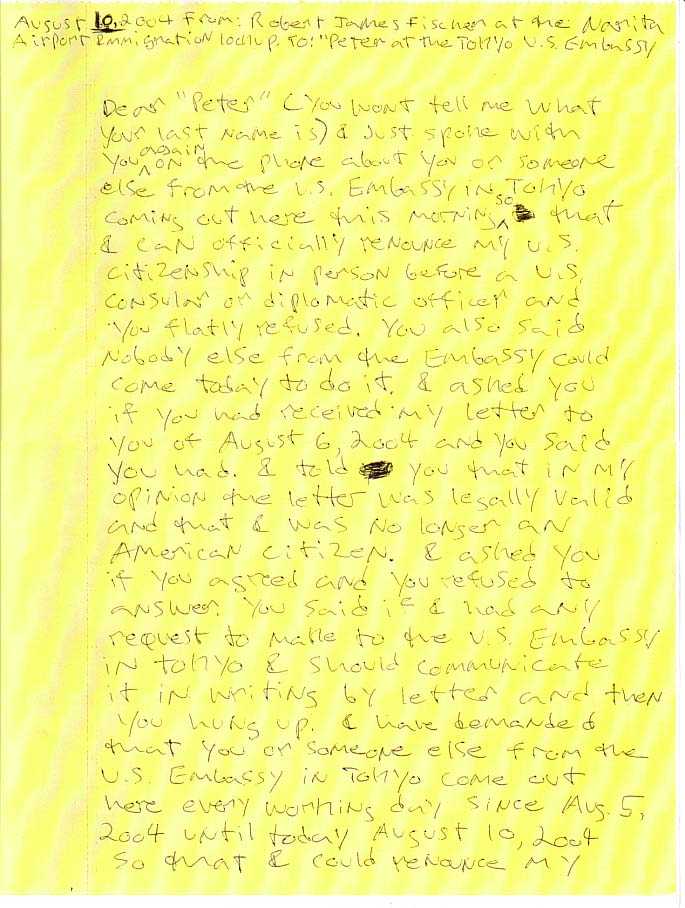 August 10, 2004 From: Robert James Fischer at the Narita
Airport Immigration lockup. To: "Peter at the Tokyo U.S. Embassy
Dear "Peter" (You wont tell me what
your last name is) I Just spoke with
you again on the phone about you or someone
else from the U.S. Embassy in Tokyo
coming out here this morning so that
I can officially renounce my U.S.
citizenship in person before a U.S.
consular or diplomatic officer and
you flatly refused. You also said
nobody else from the Embassy could
come today to do it. I asked you
if you had received my letter to
you of August 6, 2004 and you said
you had. I told you that in my
opinion the letter was legally valid
and that I was no longer an
American citizen. I asked you
if you agreed and you refused to
answer. You said if I had any
request to make to the U.S. Embassy
in Tokyo I should communicate
it in writing by letter and then
you hung up. I have demanded
that you or someone else from the
U.S. Embassy in Tokyo come out
here every working day since Aug. 5,
2004 until today August 10, 2004
so that I could renounce my